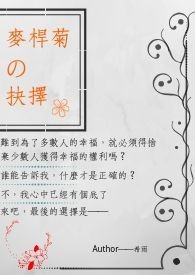 麥桿菊
の
抉擇
難到為了多數人的幸福，就必須得捨
棄少數人獲得幸福的權利嗎？
誰能告訴我，什麼才是正確的？
不，我心中已經有個底了
來吧，最後的選擇是——
Author——希雨